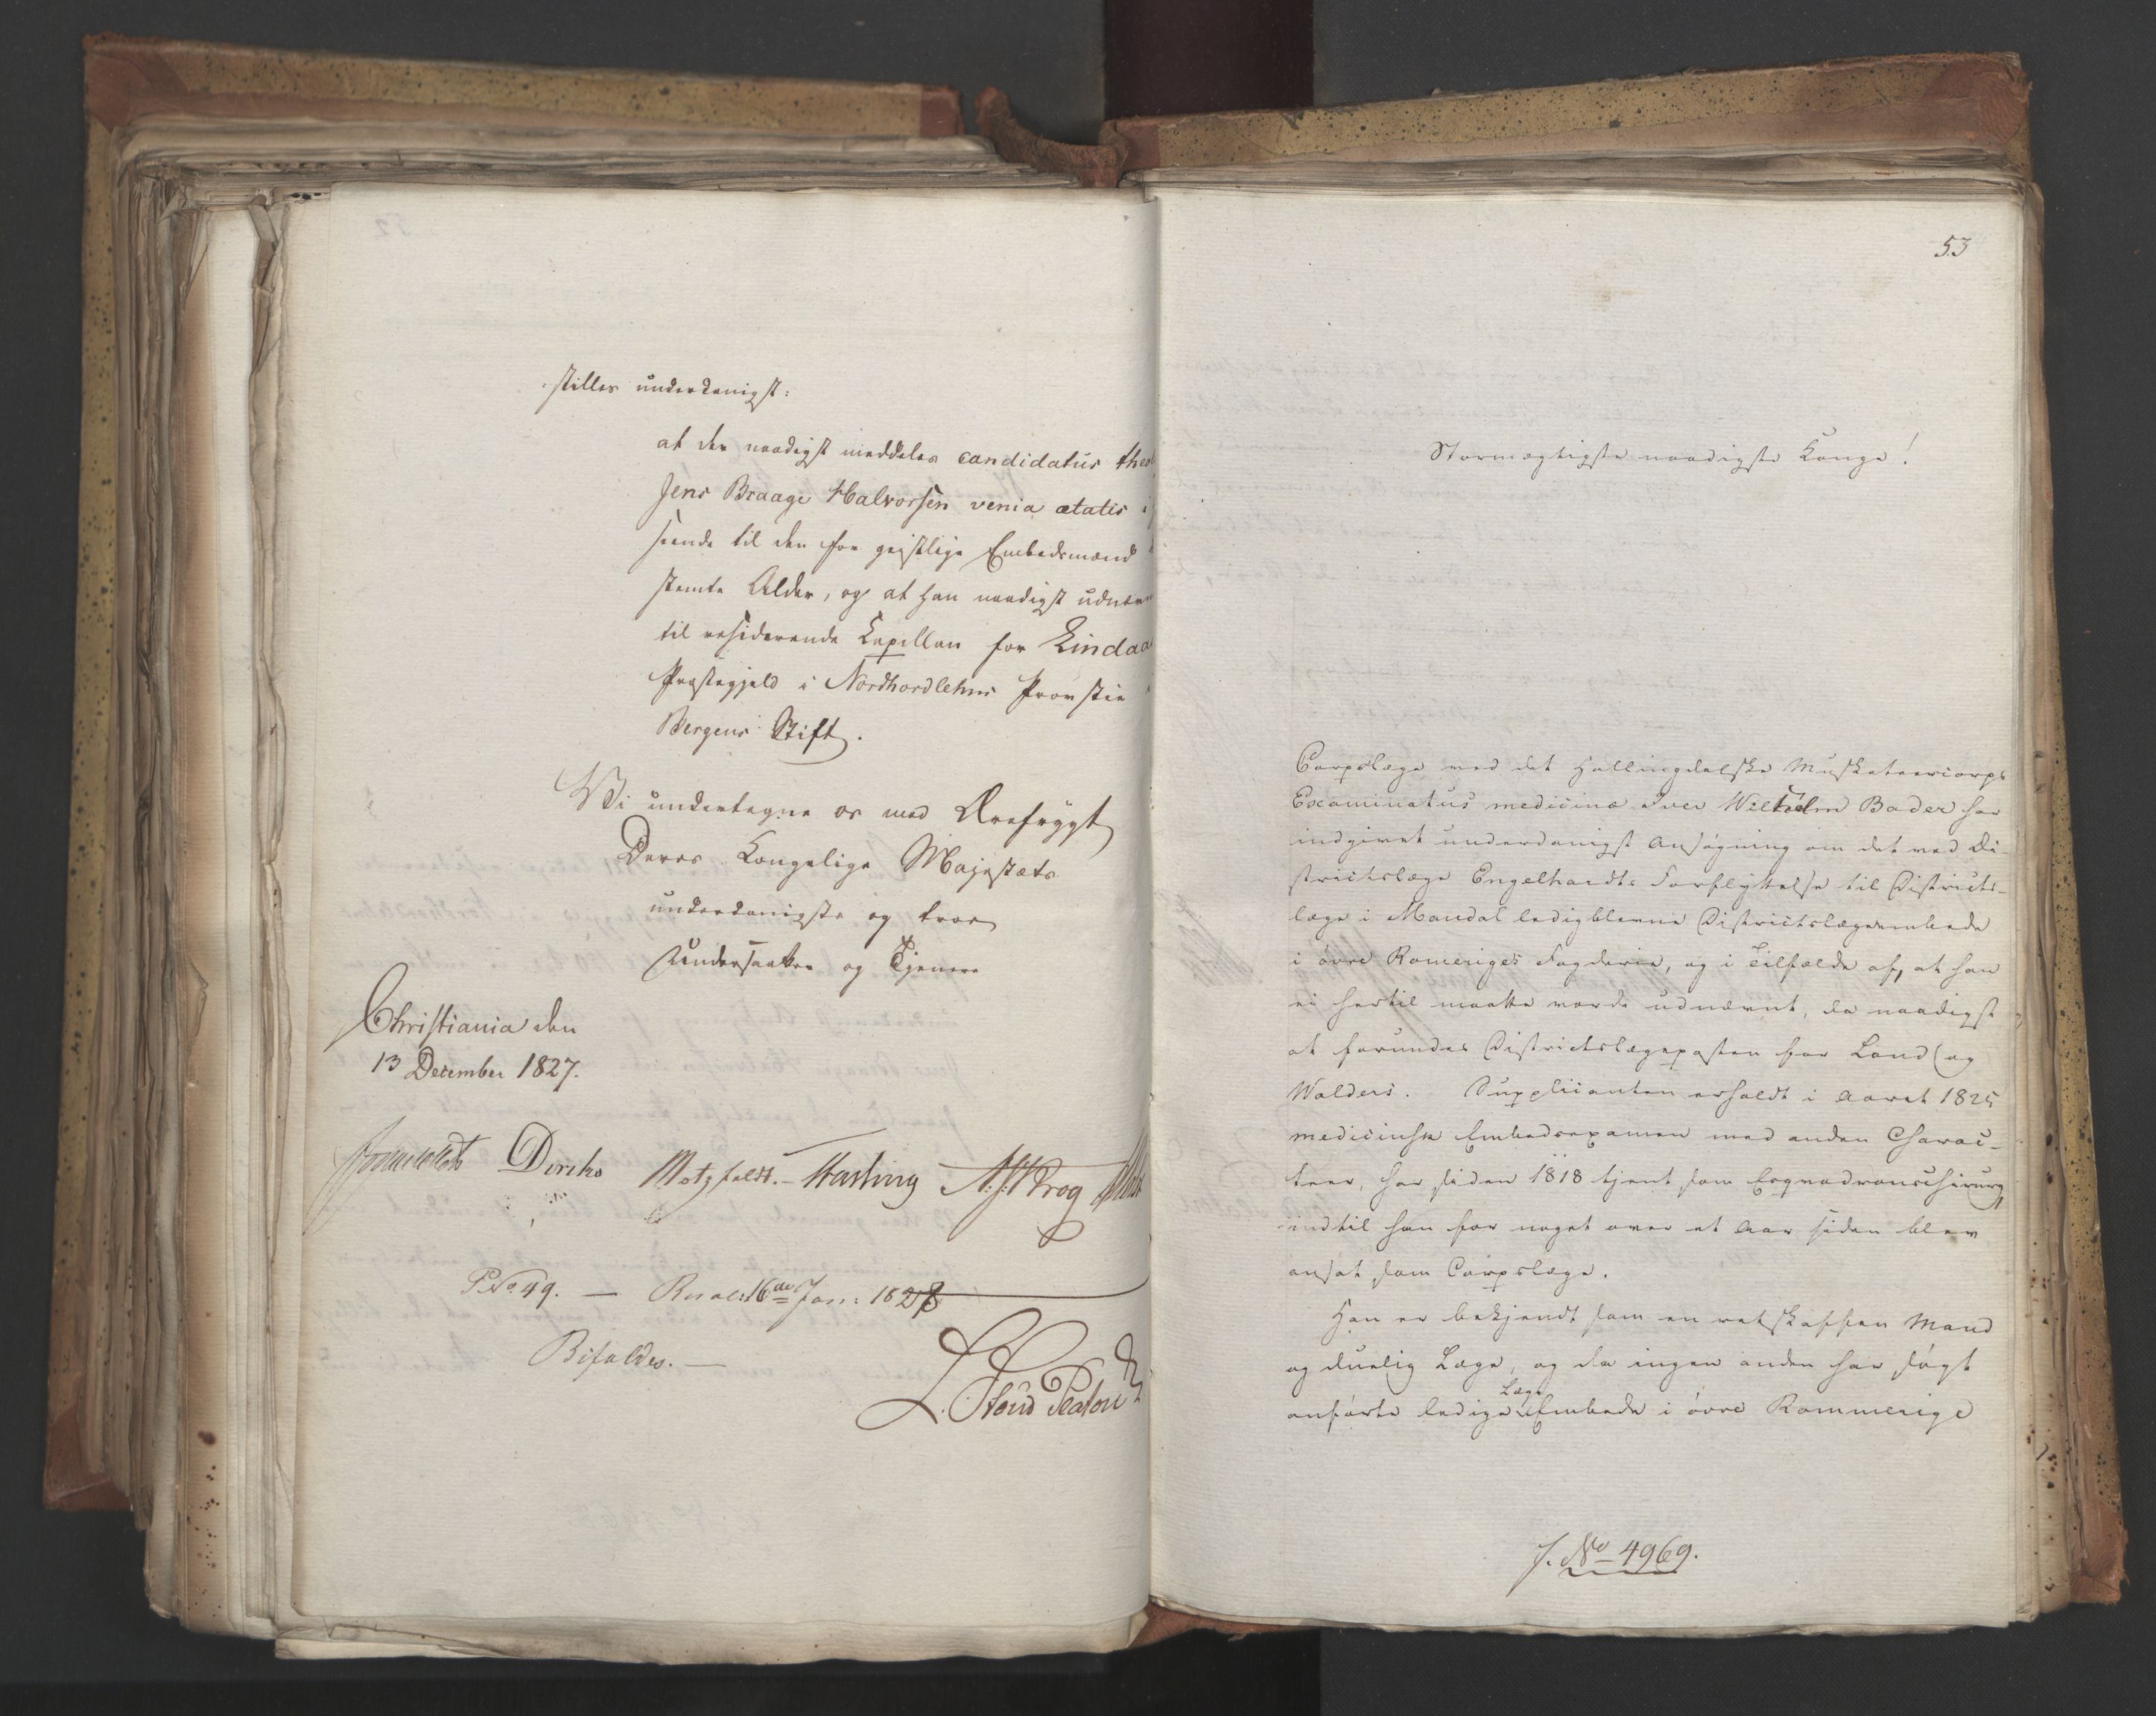 stilles underdanigst:
at der naadigst meddeles candidatus theol
Jens Braage Halvorsen venia ætatis i
seende til den for geistlige Embedsmænd
stemte Alder, og at han naadigst udnæv
til residerende Capellan for Lindaa
Præstegjeld i Nordhordlehns Provstie
Bergens Stift.
Vi undertegne os med Ærefrygt
Deres Kongelige Majestæts
underdanigste og troe
Undersaatter og Tjenere
Christiania den
13 December 1827.
Diriks Motzfeldt. Fasting A: Krog
P. No 49. — 16de Jan: 1828
Bifaldes. —
53
Stormægtigste naadigste Konge!
Corpslæge ved det Hallingdalske Musketeercorps
Examinatus medicinæ Iver Wilhelm Bader har
indgivet underdanigst Ansøgning om det ved Di-
strictslæge Engelhardts Forflyttelse til Districts-
læge i Mandal ledigblevne Districtslægeembede
i øvre Romeriges Fogderie, og i Tilfælde af, at han
ei hertil maatte vorde udnævnt, da naadigst
at forundes Districtslægeposten for Land og
Walders. Supplicanten erholdt i Aaret 1825
medicinsk Embedsexamen med anden Charac-
teer, har siden 1818 tjent som Esqvadronschirurg
indtil han for noget over et Aar siden blev
ansat som Corpslæge.
Han er bekjendt som en retskaffen Mand
og duelig Læge, og da ingen anden har søgt
anførte ledige Læge Embede i øvre Rommerige
J. No 4969.